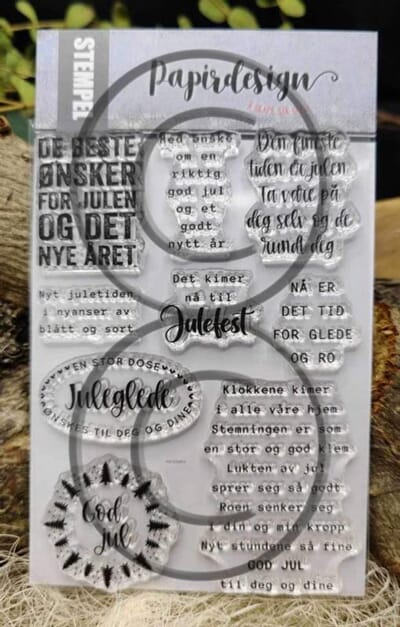 STEMPEL
Papirdesign
DE BESTE
ØNSKER
FOR JULEN
OG DET
NYE ÅRET
Med ønske
om en
riktig
god jul
og et
godt
nytt år
Den fineste
tiden er julen
Ta vare på
deg selv og de
rundt deg
Nyt juletiden
i nyanser av
blått og sort
Det kimer
nå til
Julefest
NÅ ER
DET TID
FOR GLEDE
OG RO
EN STOR DOSE
Juleglede
ØNSKES TIL DEG OG DINE
God
jul
Klokkene kimer
i alle våre hjem
Stemningen er som
en stor og god klem
Lukten av jul
sprer seg så godt
Roen senker seg
i din og min kropp
Nyt stundene så fine
GOD JUL
til deg og dine